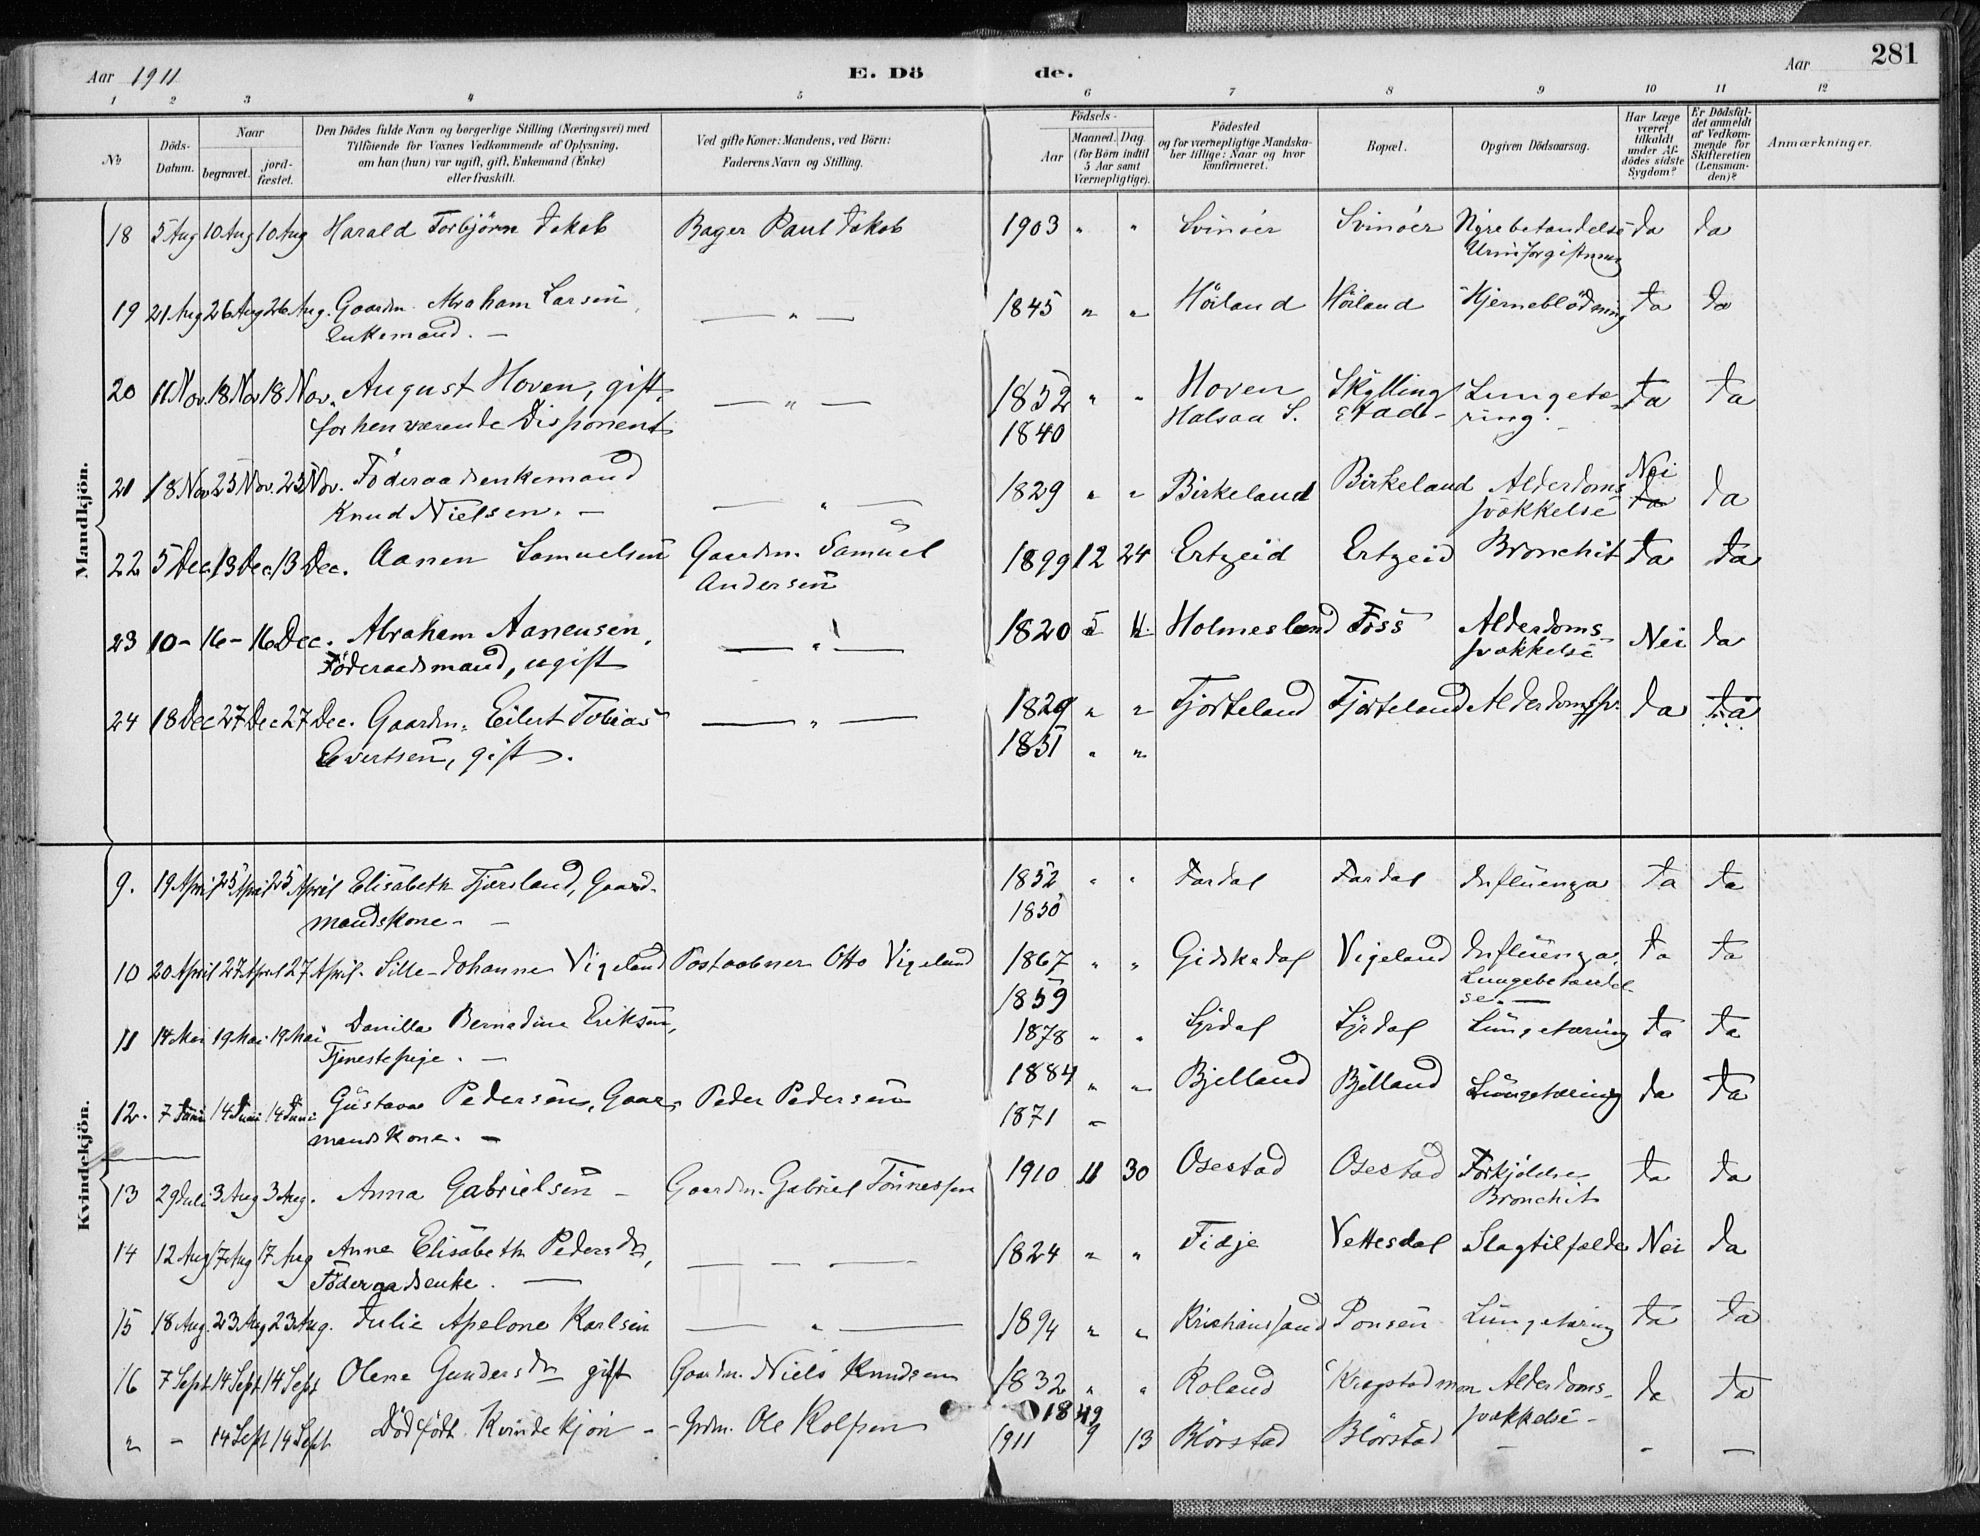 Aar 1911
E. Dö de.
Aar
281
1 2 3 4 5 6 7 8 9 10 11 12
No
Döds-Datum.
Naar
begravet.
jord-fæstet.
Den Dödes fulde Navn og borgerlige Stilling (Næringsvei) med
Tilföiende for Voxnes Vedkommende af Oplysning,
om han (hun) var ugift, gift, Enkemand (Enke)
eller fraskilt.
Ved gifte Koner: Mandens, ved Börn:
Faderens Navn og Stilling.
Födsels-
Aar
Maaned. Dag.
(for Börn indtil
5 Aar samt
Værnepligtige).
Födested
og for værnepligtige Mandska-
ber tillige: Naar og hvor
konfirmeret.
Bopæl.
Opgiven Dödsaarsag.
Har Læge
været
tilkaldt
under Af-
dödes sidste
Sygdom?
Er Dödsfal-
det anmeldt
af Vedkom-
mende for
Skifteretten
(Lensman-
den)?
Anmærkninger.
Mandkjön.
18 5 Aug 10 Aug 10 Aug Harald Torbjörn Jakob Bager Paul Jakob 1903 " " Svinöer Svinöer Nyrebetændelse Ja Ja
Urinforgiftning
19 21 Aug 26 Aug 26 Aug. Gaardm. Abraham Larsen — " — 1845 " " Höiland Höiland Hjerneblödning Ja Ja
Enkemand. —
20 11 Nov. 18 Nov 18 Nov. August Hoven, gift, — " — 1852 " " Hoven Skylling Lungetæ- Ja Ja
forhenværende Disponent 1840 Halsaa S. stad- ring.
21 18 Nov 25 Nov. 25 Nov. Föderaadsenkemand — " — 1829 " " Birkeland Birkeland Alderdoms Nei Ja Ja
Knud Nielsen. — svækkelse
22 5 Dec 13 Dec. 13 Dec. Aanen Samuelsen Gaardm. Samuel 1899 12 24 Ertzeid Ertzeid Bronchit Ja Ja
Andersen
23 10 - 16 - 16 Dec. Abraham Aanensen, — " — 1820 5 4. Holmesland Foss Alderdoms- Nei Ja
Föderaadsmand, ugift svækkelse
24 18 Dec 27 Dec 27 Dec. Gaardm. Eilert Tobias — " — 1829 " " Fjorteland Fjorteland Alderdomssv. Ja Ja
Evertsen, gift. 1851 " "
Kvindekjön.
9. 19 April 25 April 25 April Elisabeth Tjørsland, Gaard- 1852 " " Fardal Fardal Influenza Ja Ja
mandskone - — 1850
10 20 April 27 April 27 April. Sille Johanne Vigeland Postaabner Otto Vigeland 1867 " " Gidskedal Vigeland Influenza, Ja Ja
1859 Lungebetændel-
se. —
11 14 Mai 19 Mai 19 Mai Danilla Bernadine Eriksen, 1878 " " Lyrdal Lyrdal Lungetæring Ja Ja
Tjenestepige. —
12. 7 Juni 14 Juni 14 Juni Gustava Pedersen, Gaar- Peder Pedersen 1884 " " Bjelland Bjelland Lungetæring Ja Ja
mandskone. — 1871 "
13 29 Juli 3 Aug 3 Aug. Anna Gabrielsen — Gaardm. Gabriel Tönnessen 1910 11 30 Osestad Osestad Forkjölelse Ja Ja
Bronchit
14 12 Aug 17 Aug 17 Aug Anne Elisabeth Pedersdtr, — — — 1824 " " Fidje Vettesdal Slagtilfælde Nei Ja
Föderaadsenke. —
15 18 Aug. 23 Aug 23 Aug. Julie Apelone Karlsen — " — 1894 " " Kristianssand Ponsen Lungetæring Ja Ja
16 7 Sept 14 Sept 14 Sept Olene Gundersdtr gift Gaardm. Niels Knudsen 1832 " " Roland Alderdoms- Ja Ja
1849 svækkelse -
" - 14 Sept 14 Sept Dödfödt Kvindekjön - - Grdm. Ole Rolfsen 1911 9 13 Blörstad Blörstad — - —